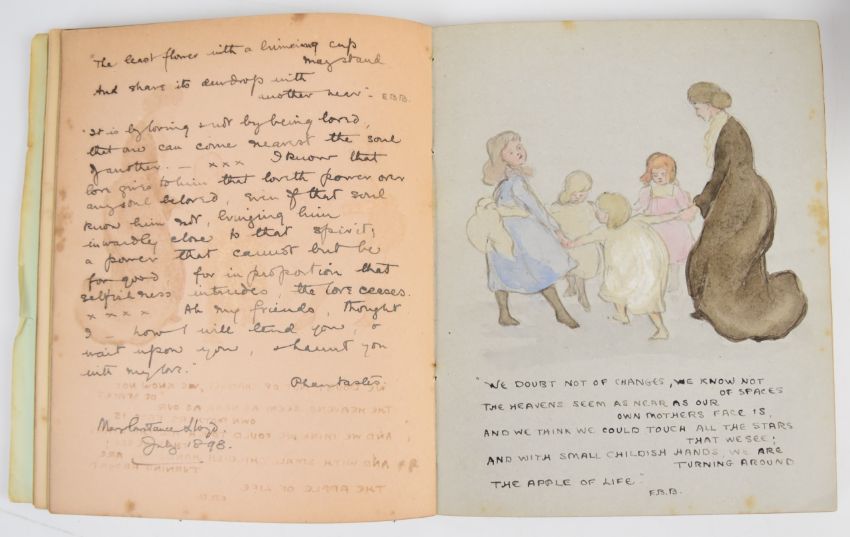 "The least flower with a brimming cup
may stand
And share its dewdrop with
another near" - E.B.B.
"It is by loving & not by being loved,
that one can come nearest the soul
of another. - x x x I know that
love gives to him that loveth power over
any soul beloved, even if that soul
know him not, bringing him
inwardly close to that spirit;
a power that cannot but be
for good, for in proportion that
selfishness intrudes, the love ceases.
x x x x Ah my friends, thought
I - how I will tend you, &
wait upon you, & haunt you
with my love."
Phantastes.
Mary Constance Lloyd.
July 1898.
"WE DOUBT NOT OF CHANGES, WE KNOW NOT
OF SPACES
THE HEAVENS SEEM AS NEAR AS OUR
OWN MOTHERS FACE IS,
AND WE THINK WE COULD TOUCH ALL THE STARS
THAT WE SEE;
AND WITH SMALL CHILDISH HANDS, WE ARE
TURNING AROUND
THE APPLE OF LIFE"
E.B.B.